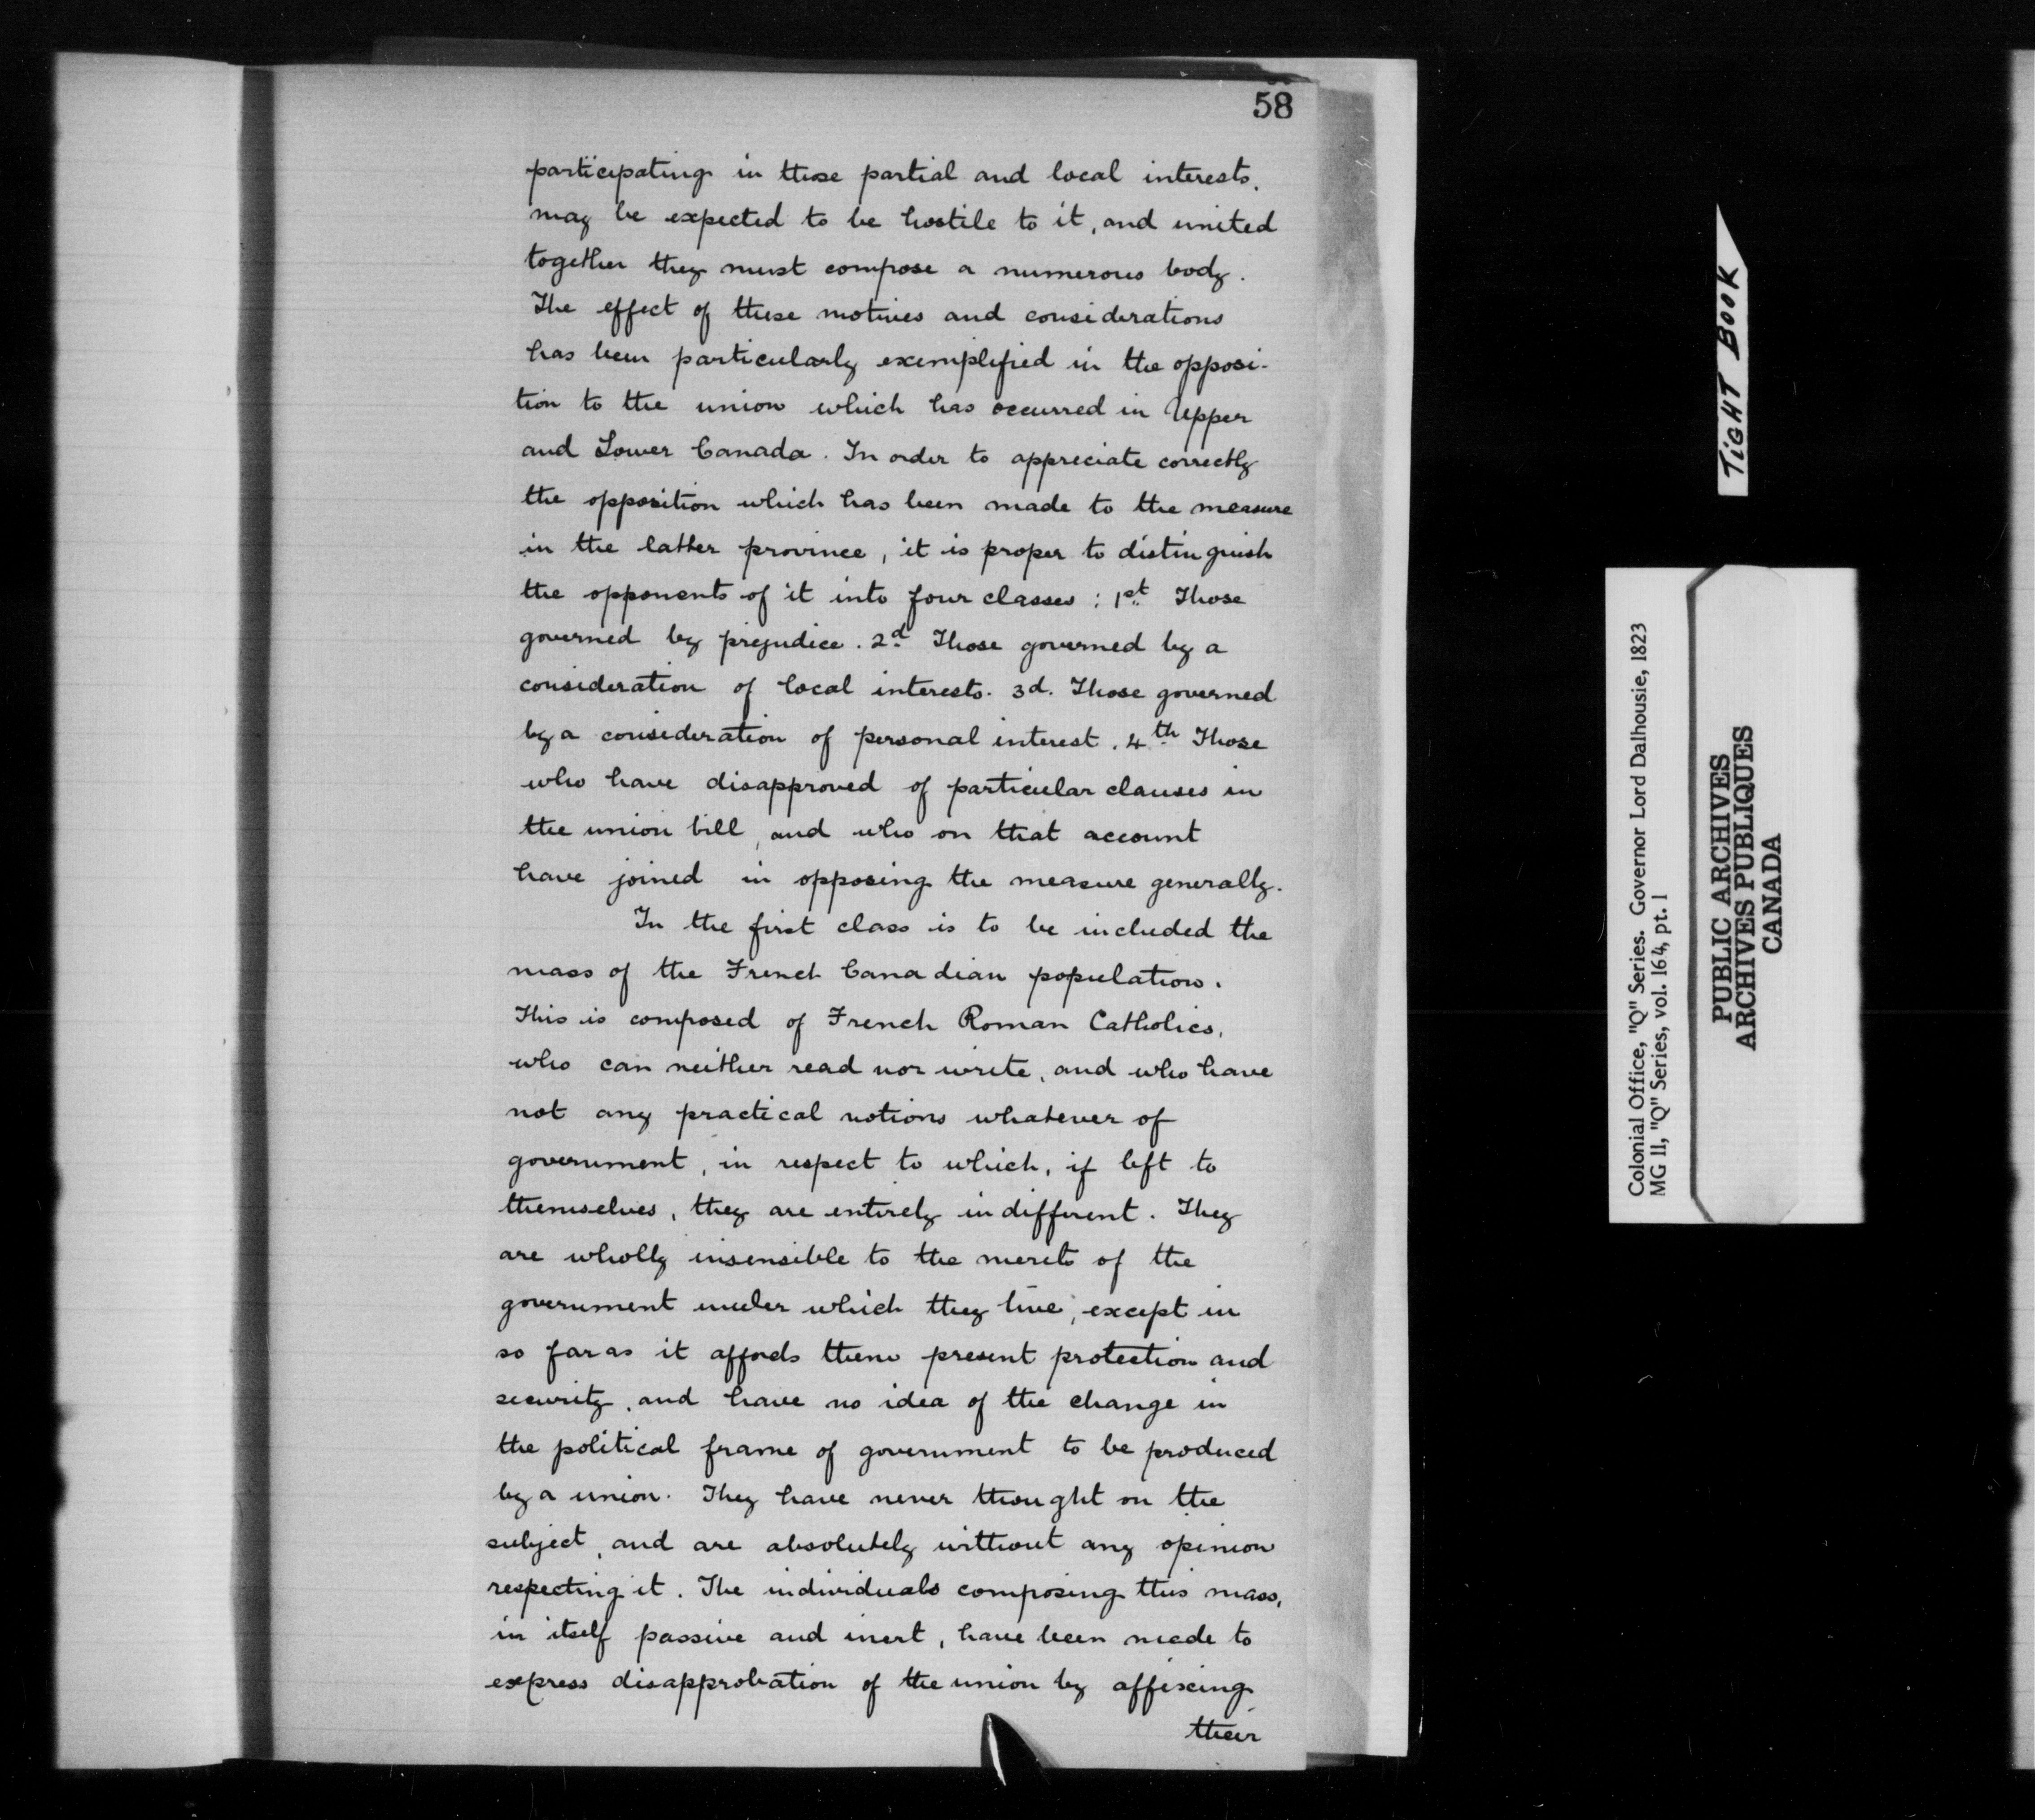 58
participating in those partial and local interests,
may be expected to be hostile to it, and united
together they must compose a numerous body.
The effect of these motives and considerations
has been particularly exemplified in the opposi-
tion to the union which has occurred in Upper
and Lower Canada. In order to appreciate correctly
the opposition which has been made to the measure
in the latter province, it is proper to distinguish
the opponents of it into four classes: 1st Those
governed by prejudice. 2d Those governed by a
consideration of local interests. 3d. Those governed
by a consideration of personal interest. 4th Those
who have disapproved of particular clauses in
the union bill, and who on that account
have joined in opposing the measure generally.
In the first class is to be included the
mass of the French Canadian population.
This is composed of French Roman Catholics,
who can neither read nor write, and who have
not any practical notions whatever of
government, in respect to which, if left to
themselves, they are entirely indifferent. They
are wholly insensible to the merits of the
government under which they live, except in
so far as it affords them present protection and
security, and have no idea of the change in
the political frame of government to be produced
by a union. They have never thought on the
subject, and are absolutely without any opinion
respecting it. The individuals composing this mass,
in itself passive and inert, have been made to
express disapprobation of the union by affixing
their
TIGHT BOOK
Colonial Office, "Q" Series. Governor Lord Dalhousie, 1823
MG 11, "Q" Series, vol. 164, pt. 1
PUBLIC ARCHIVES
ARCHIVES PUBLIQUES
CANADA